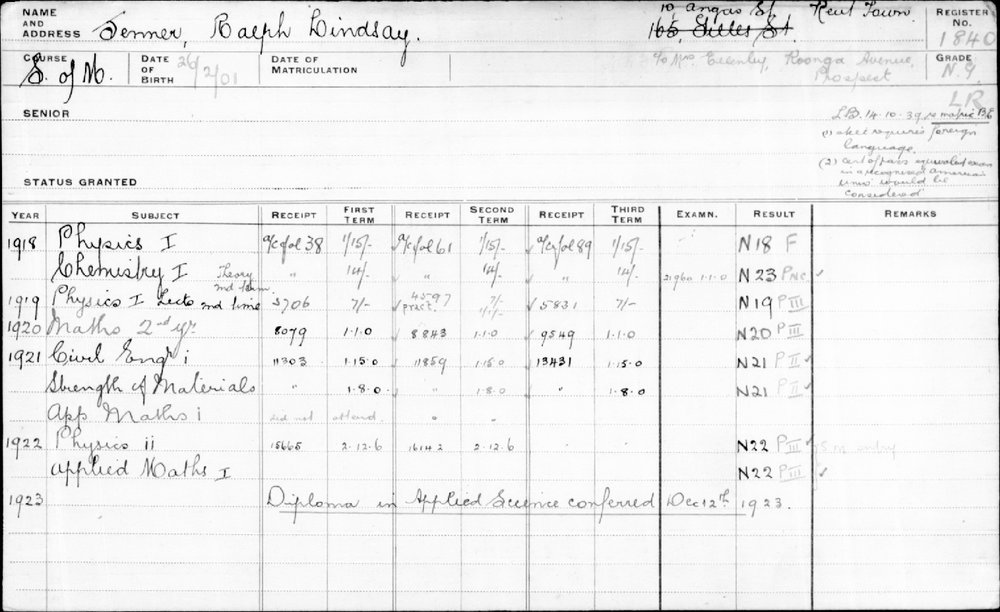 NAME AND ADDRESS Jenner, Ralph Lindsay. 10, Angas St. Kent Town. REGISTER No. 1840
165, Gilles St.
COURSE S. of M. DATE OF BIRTH 26/2/01 DATE OF MATRICULATION c/o Mrs Avenue, Prospect GRADE N.G.
LR
SENIOR
L.B. 14.10.39 re matric B.E.
(1) requires foreign language.
(2) cert of pass equivalent exam in a recognised American univ would be considered
STATUS GRANTED
YEAR SUBJECT RECEIPT FIRST TERM RECEIPT SECOND TERM RECEIPT THIRD TERM EXAMN. RESULT REMARKS
1918 Physics I a/c fol 38 1/15/- a/c fol 61 1/15/- a/c fol 89 1/15/- N18 F
Chemistry I Theory " 14/- " 14/- " 14/- 1-1-0 N23 P NC
1919 Physics I Lects 2nd time 5706 7/- 4597 pract. 7/- 5831 7/- N19 P III
1920 Maths 2nd yr 8079 1-1-0 8843 1-1-0 9549 1-1-0 N20 P III
1921 Civil Engr i 11303 1-15-0 11859 1-15-0 13431 1-15-0 N21 P II
Strength of Materials " 1-8-0 " 1-8-0 " 1-8-0 N21 P II
App Maths i did not attend " -
1922 Physics ii 15665 2-12-6 16142 2-12-6 N22 P III
Applied Maths I N22 P III
1923 Diploma in Applied Science conferred Dec 12th 1923.